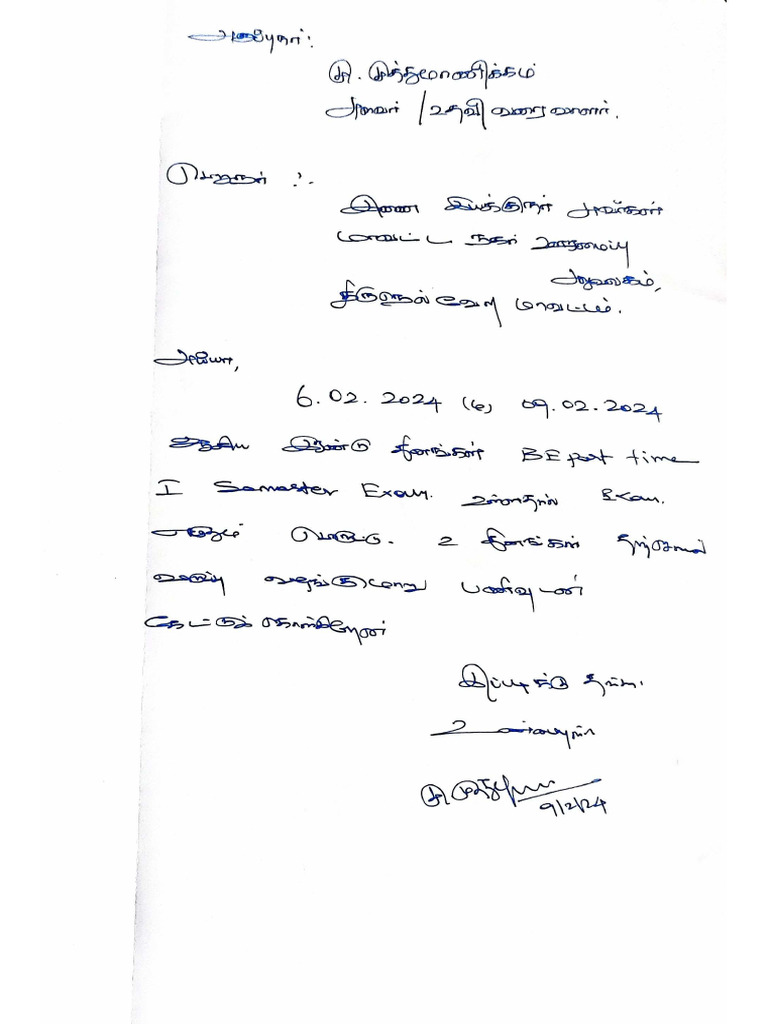 அனுப்புநர்:
மு. முத்துமாணிக்கம்
அளவர் / உதவி வரைவாளர்.
பெறுநர் :-
இணை இயக்குநர் அவர்கள்
மாவட்ட நகர் ஊரமைப்பு
அலுவலகம்,
திருநெல்வேலி மாவட்டம்.
அய்யா,
6.02.2024 (ம) 09.02.2024
ஆகிய இரண்டு தினங்கள் BE part time
I Semester Exam. உள்ளதால் Exam.
எழுதும் பொருட்டு. 2 தினங்கள் தற்செயல்
விடுப்பு வழங்குமாறு பணிவுடன்
கேட்டுக் கொள்கிறேன்
இப்படிக்கு தங்கள்.
உண்மையுள்ள
9/2/24